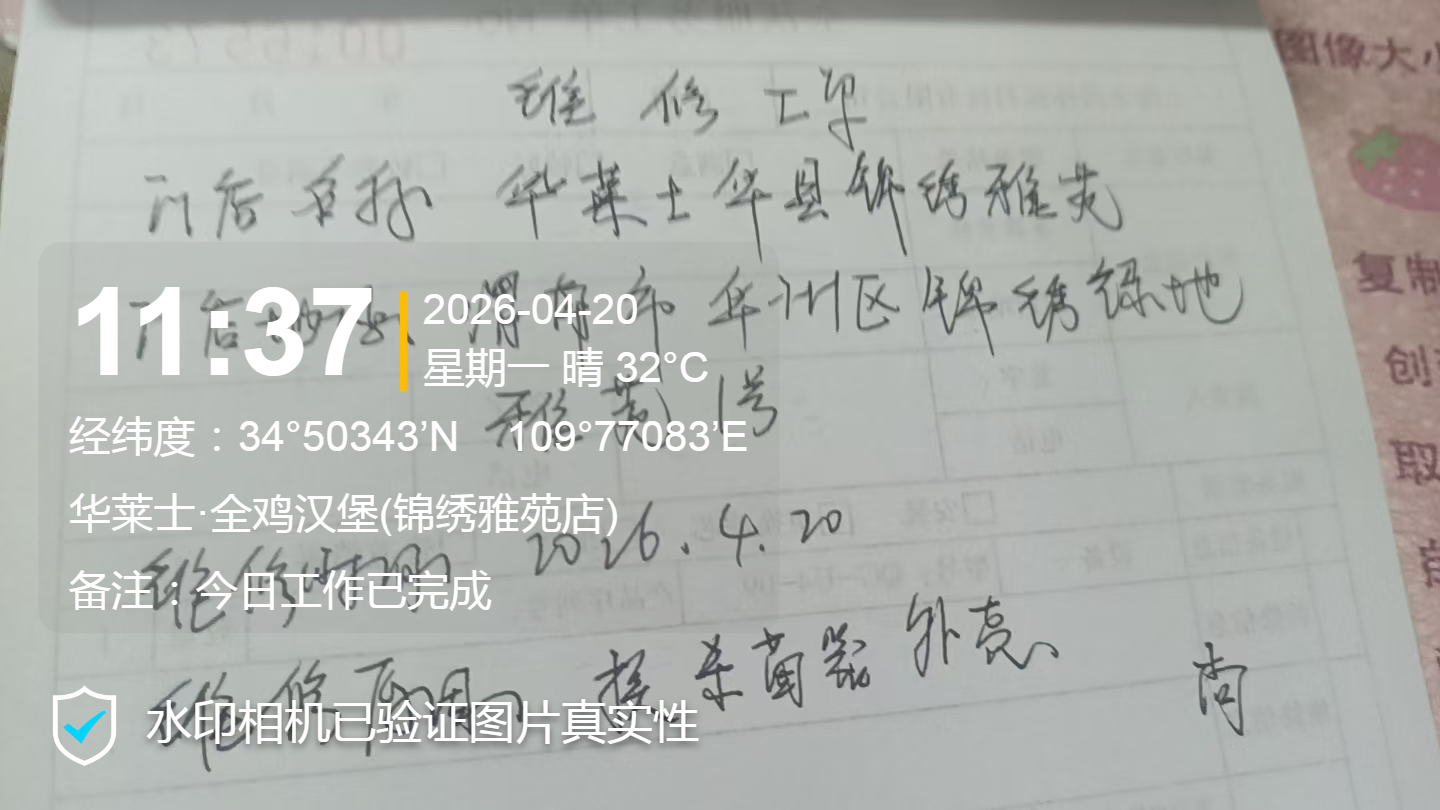 维修工单
门店名称 华莱士华县锦绣雅苑
门店地址 渭南市华州区锦绣绿地
雅苑1号
维修时间 2026.4.20
维修原因 换杀菌器外壳、 尚
11:37
2026-04-20
星期一 晴 32°C
经纬度：34°50343’N 109°77083’E
华莱士·全鸡汉堡(锦绣雅苑店)
备注：今日工作已完成
水印相机已验证图片真实性
图像大小
复制
创
取